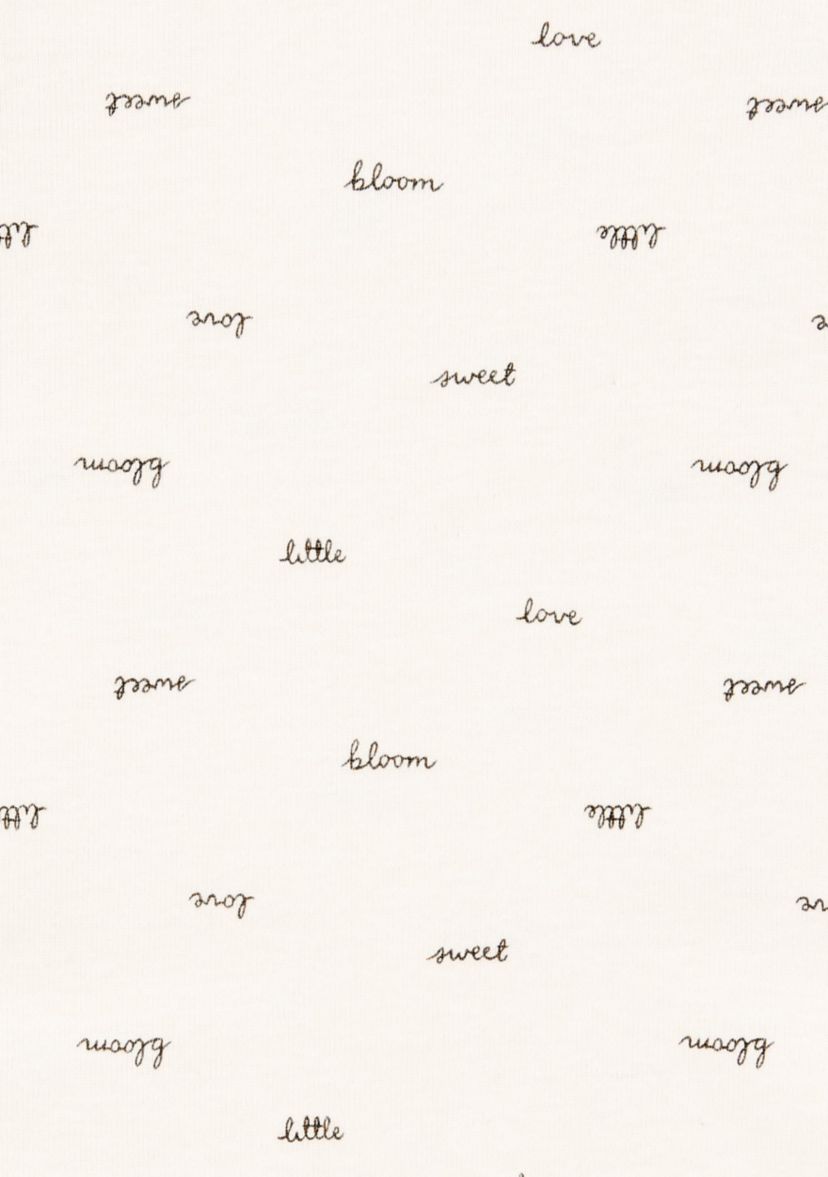 love
sweet sweet
bloom
little
love
sweet
bloom bloom
little
love
sweet sweet
bloom
little
love
sweet
bloom bloom
little